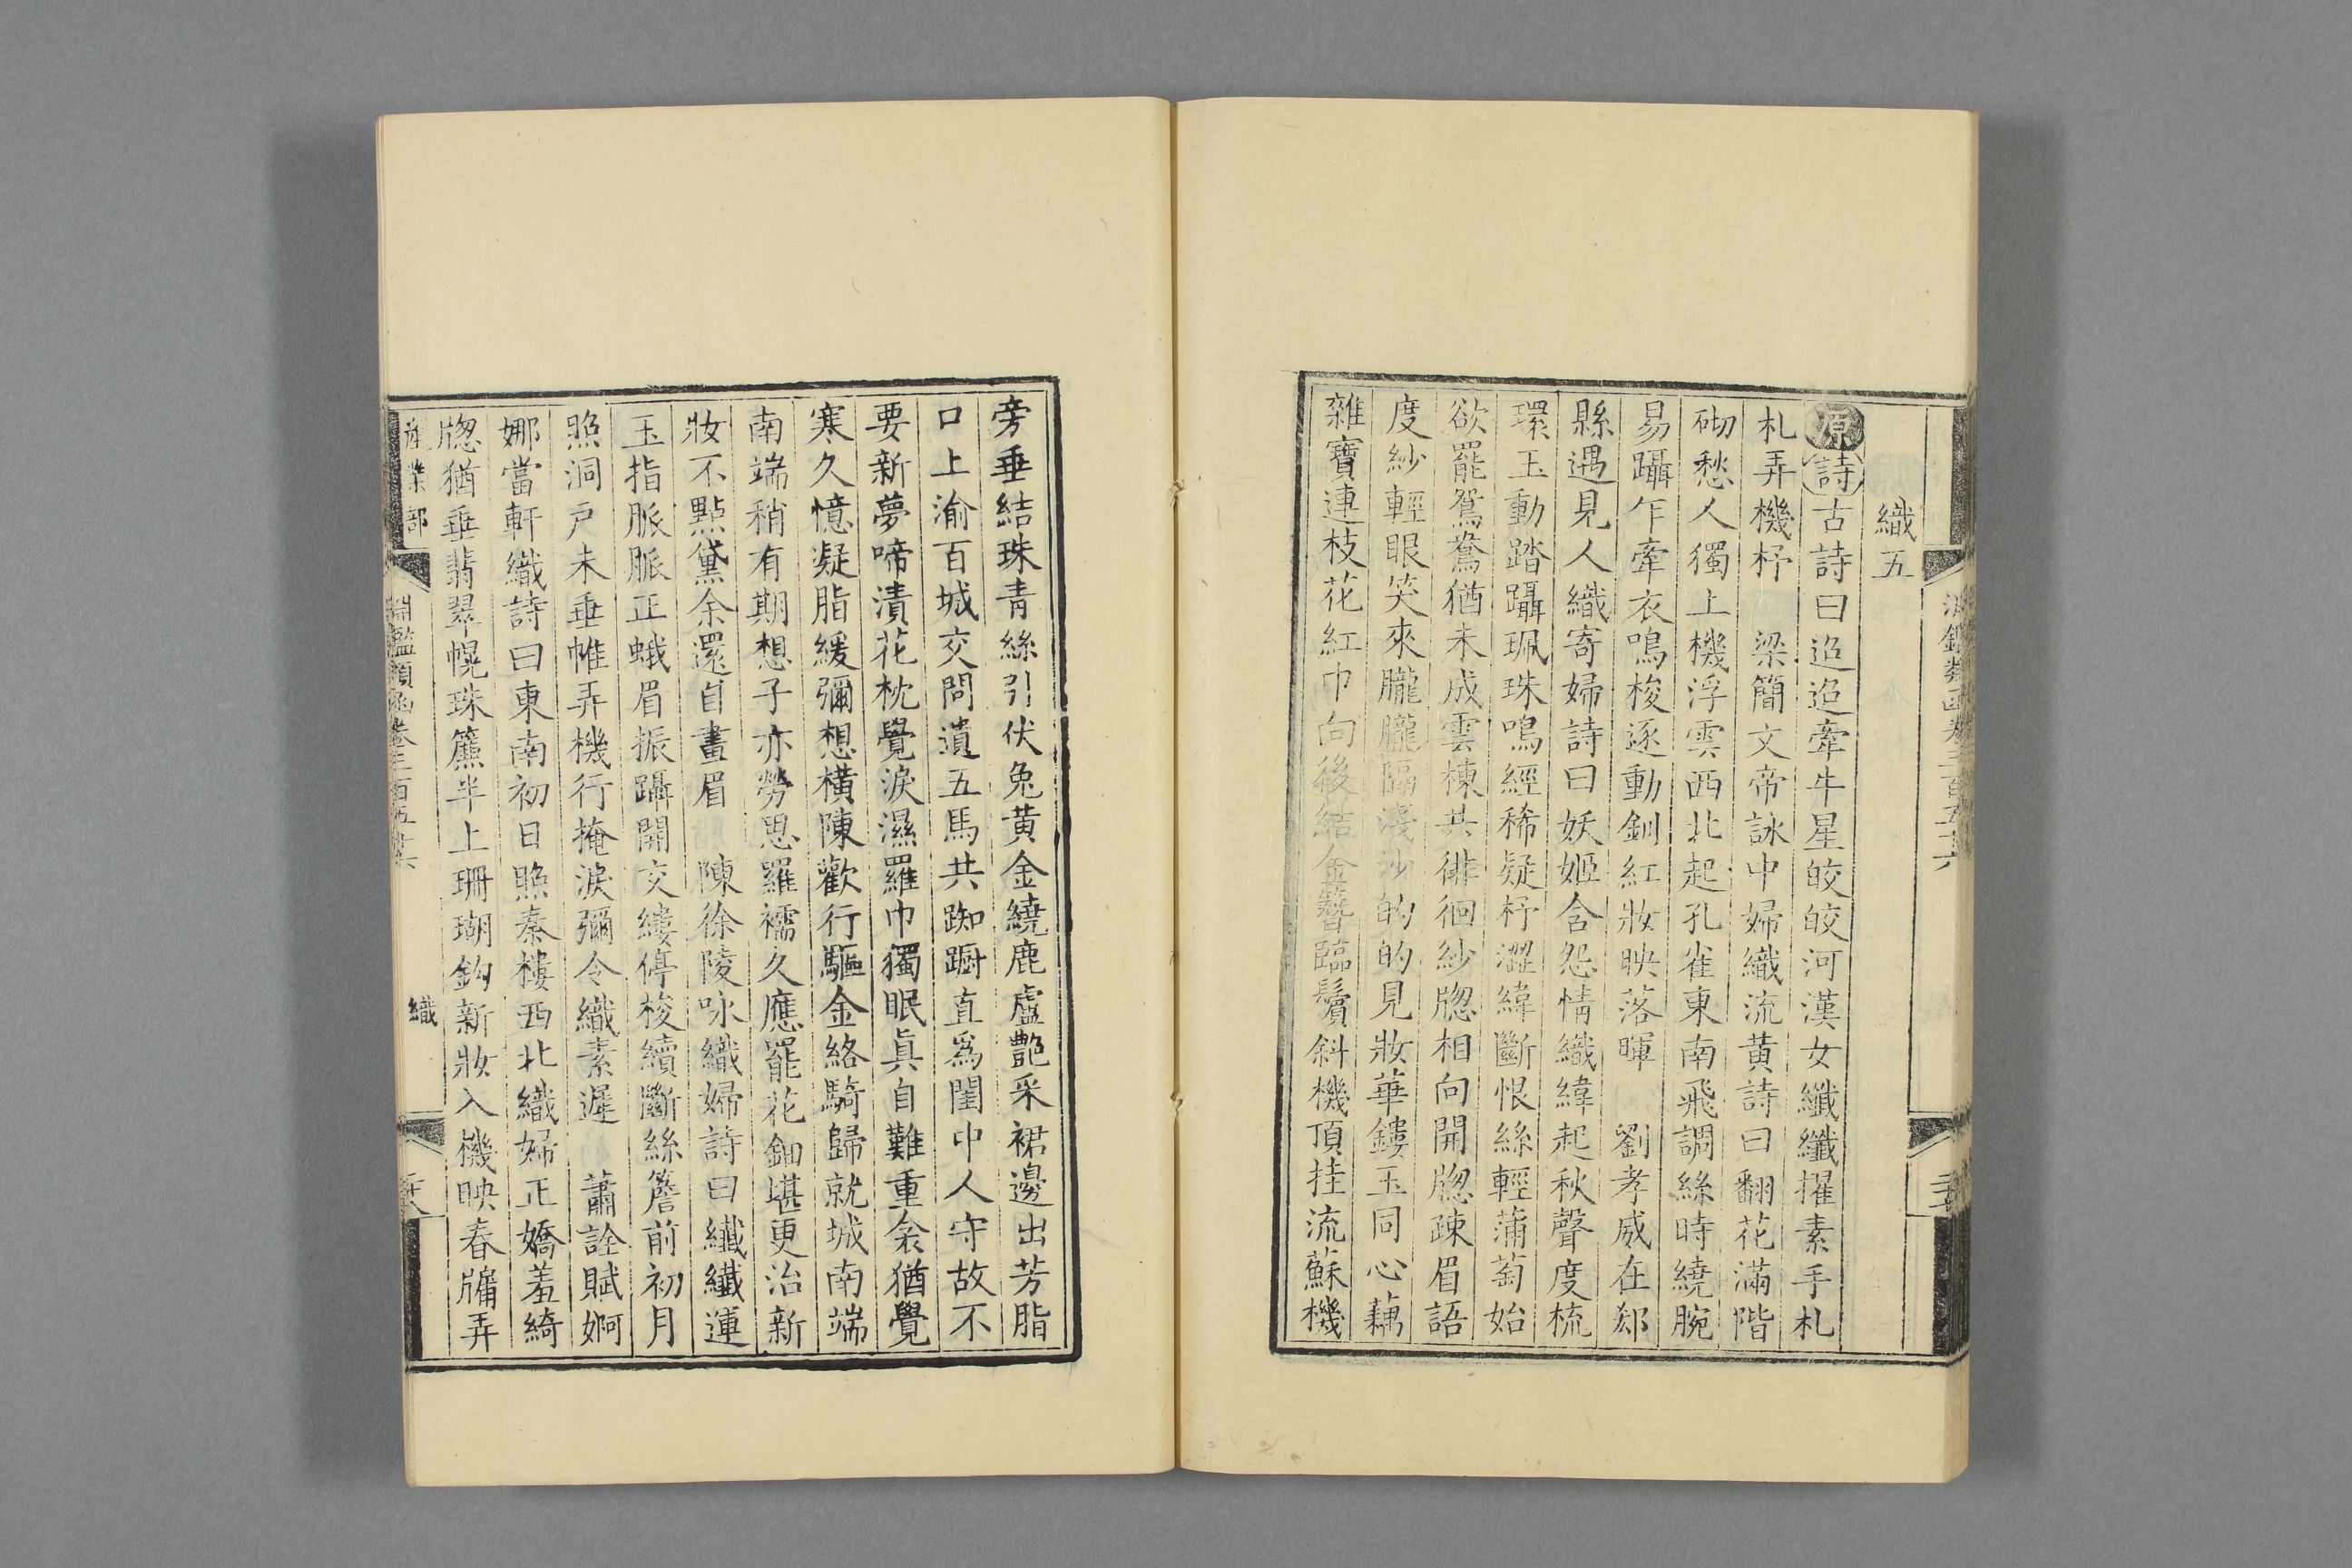 織五
原詩古詩曰迢迢牽牛星皎皎河漢女纖纖擢素手札
札弄機杼　梁簡文帝詠中婦織流黃詩曰翻花滿階
砌愁人獨上機浮雲西北起孔雀東南飛調絲時繞腕
易躡乍牽衣鳴梭逐動釧紅妝映落暉　劉孝威在郄
縣遇見人織寄婦詩曰妖姬含怨情織緯起秋聲度梳
環玉動踏躡珮珠鳴經稀疑杼澀緯斷恨絲輕蒲萄始
欲罷鴛鴦猶未成雲棟共徘徊紗牕相向開牕疎眉語
度紗輕眼笑來朧朧隔淺沙的的見妝華鏤玉同心藕
雜寶連枝花紅巾向後結金簪臨鬢斜機頂挂流蘇機
旁垂結珠青絲引伏兔黃金繞鹿盧艷采裙邊出芳脂
口上渝百城交問遺五馬共踟躕直爲閨中人守故不
要新夢啼漬花枕覺淚濕羅巾獨眠眞自難重衾猶覺
寒久憶凝脂緩彌想橫陳歡行驅金絡騎歸就城南端
南端稍有期想子亦勞思羅襦久應罷花鈿堪更治新
妝不點黛余還自畫眉　陳徐陵咏織婦詩曰纖纖運
玉指脈脈正蛾眉振躡開交縷停梭續斷絲簷前初月
照洞戸未垂帷弄機行掩淚彌令織素遲　蕭詮賦婀
娜當軒織詩曰東南初日照秦樓西北織婦正嬌羞綺
牕猶垂翡翠幌珠簾半上珊瑚鈎新妝入機映春牖弄
產業部
淵鑑類函卷三百五十六
織